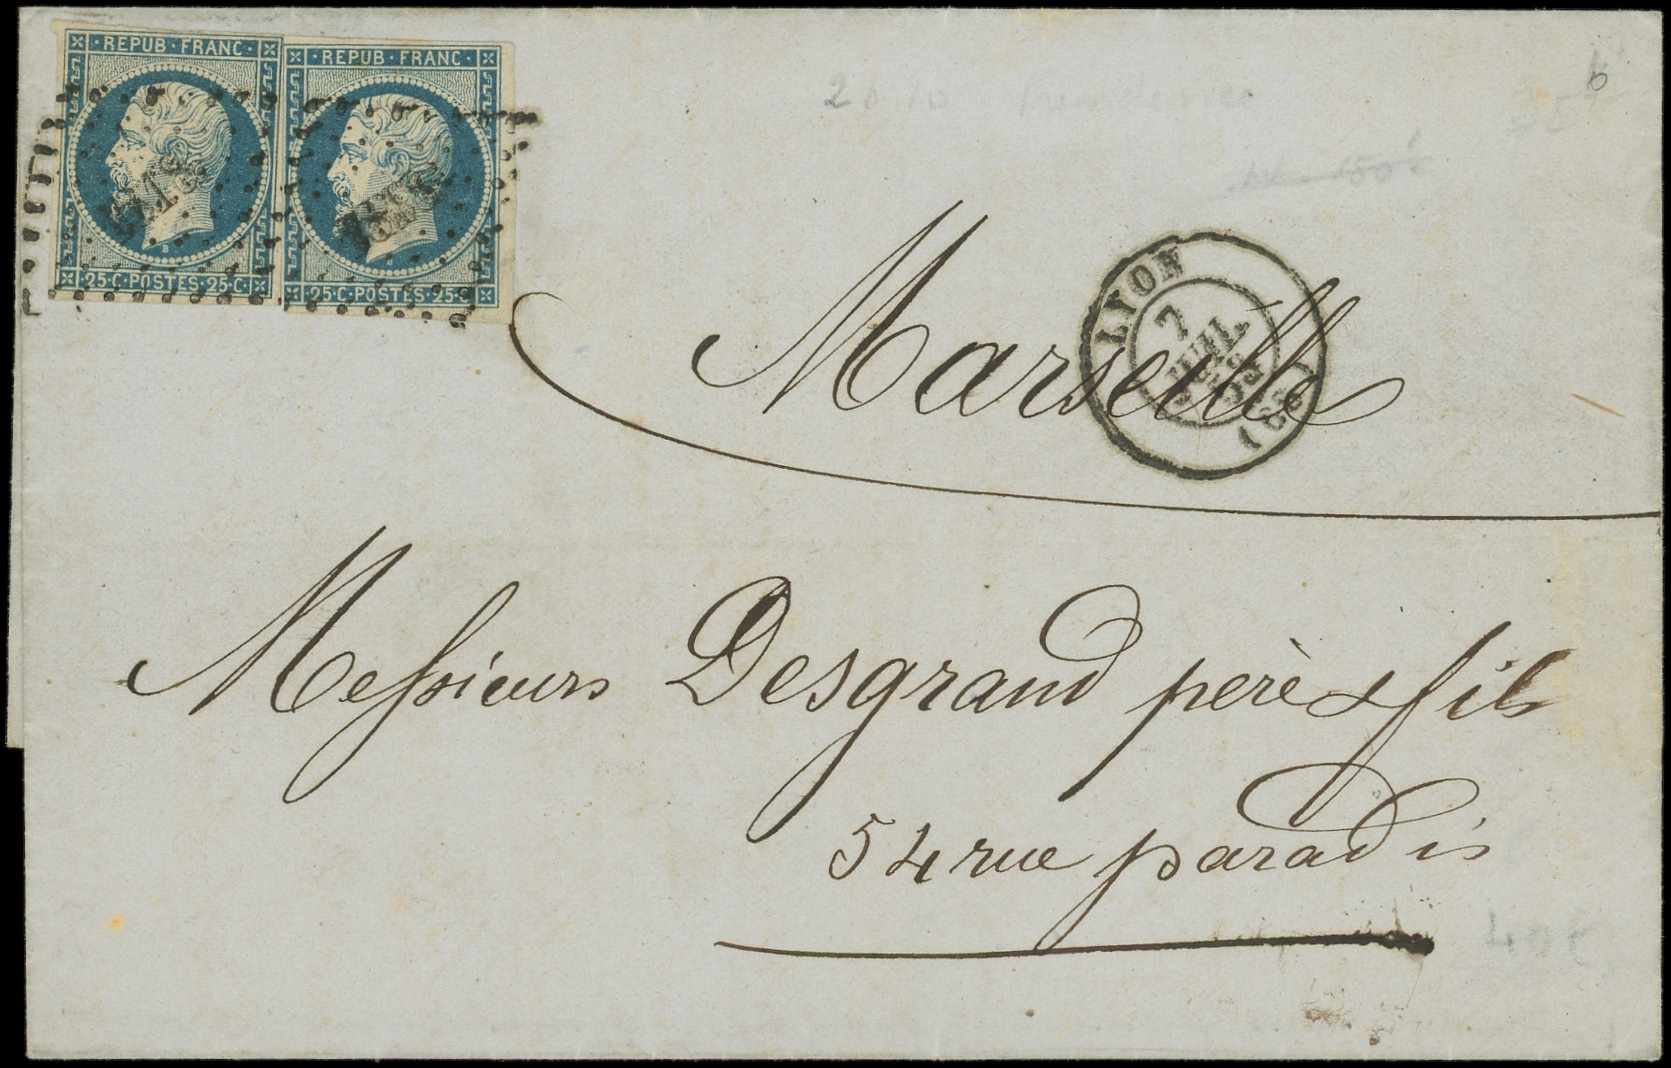 · REPUB · FRANC ·
· REPUB · FRANC ·
25 · C · POSTES · 25 · C
25 · C · POSTES · 25 · C
LYON
7
JUIL.
53
(68)
Marseille
Messieurs Desgrand père & fils
54 rue paradis